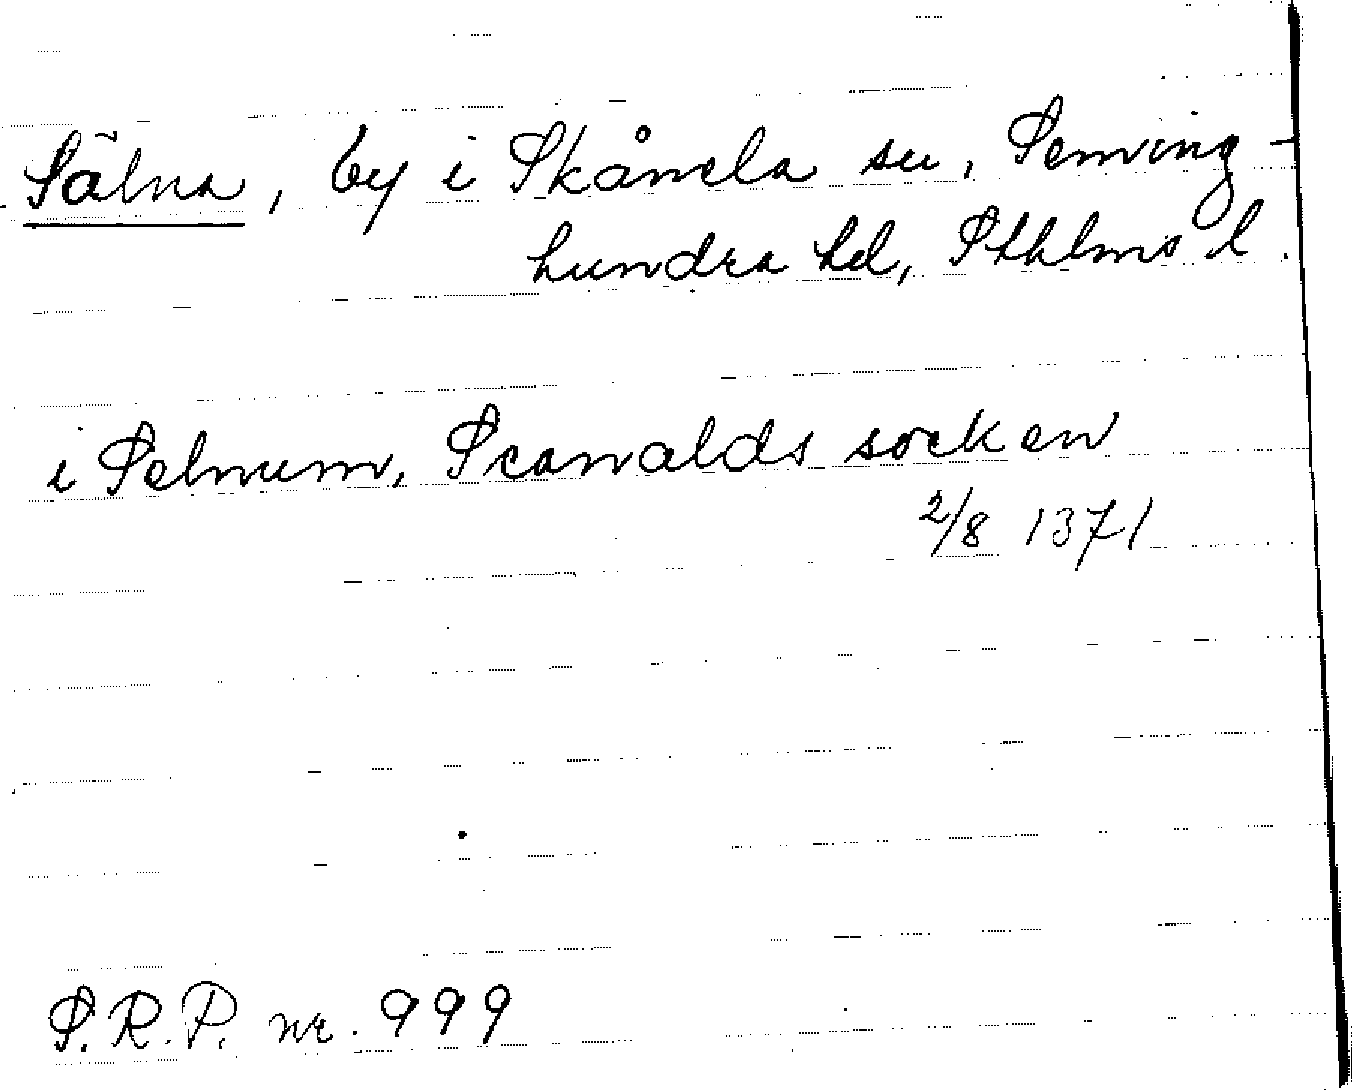 Sälna, by i Skånela sn, Seming-
hundra hd, Sthlms l.
i Selnum, Scanalds socken
2/8 1371
S.R.P. nr. 999